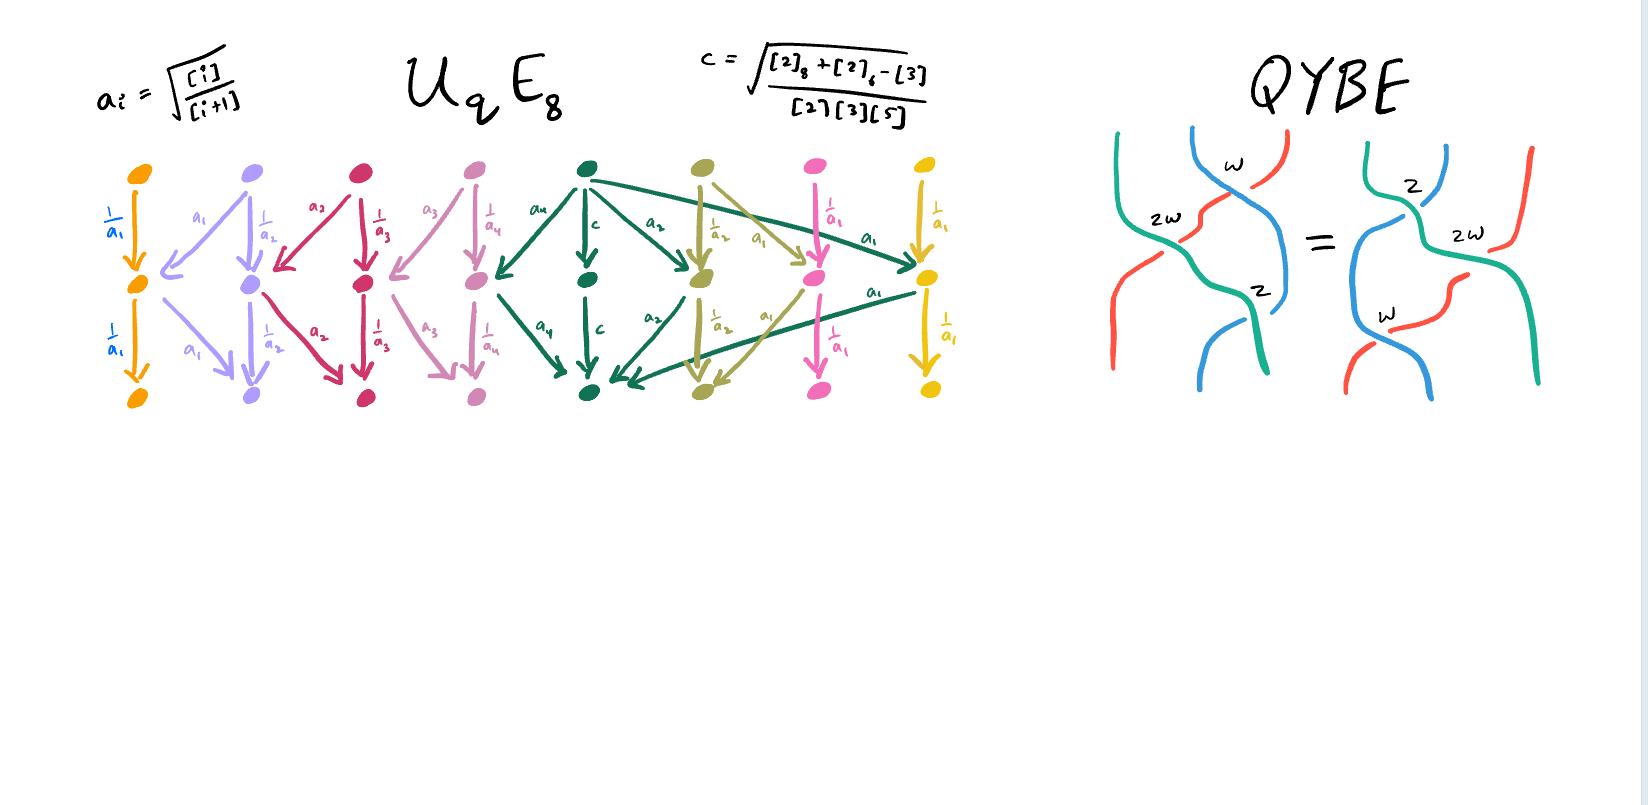 a_i = √([i]/[i+1])
U_q E_8
c = √(([2]_8 + [2]_6 - [3])/([2][3][5]))
QYBE
1/a_1 a_1 1/a_2 a_2 1/a_3 a_3 1/a_4 a_4 c a_2 a_1 1/a_2 a_1 1/a_1 1/a_1
1/a_1 a_1 1/a_2 a_2 1/a_3 a_3 1/a_4 a_4 c a_2 a_1 1/a_2 a_1 1/a_1 1/a_1
w
zw
z
=
z
zw
w